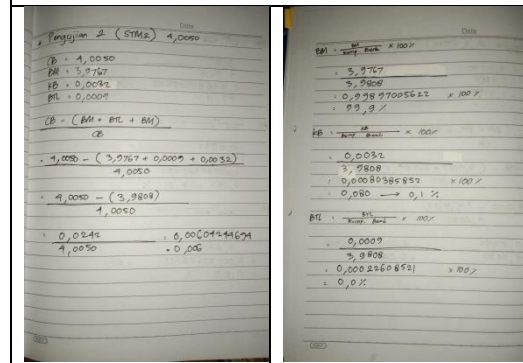 Date
• Pengujian 2 (STM2) 4,0050
CB : 4,0050
BM : 3,9767
KB : 0,0032
BTL : 0,0009
CB - (BM + BTL + BM)
CB
: 4,0050 - (3,9767 + 0,0009 + 0,0032)
4,0050
: 4,0050 - (3,9808)
4,0050
: 0,0242 : 0,00604244694
4,0050 = 0,006
Date
BM = BM x 100%
Komp. Bank
: 3,9767
3,9808
: 0,99897005622 x 100%
: 99,9%
KB = KB x 100%
Komp. Bank
: 0,0032
3,9808
: 0,00080385852 x 100%
: 0,080 → 0,1 %
BTL = BTL x 100%
Komp. Bank
: 0,0009
3,9808
: 0,00022608521 x 100%
: 0,0%